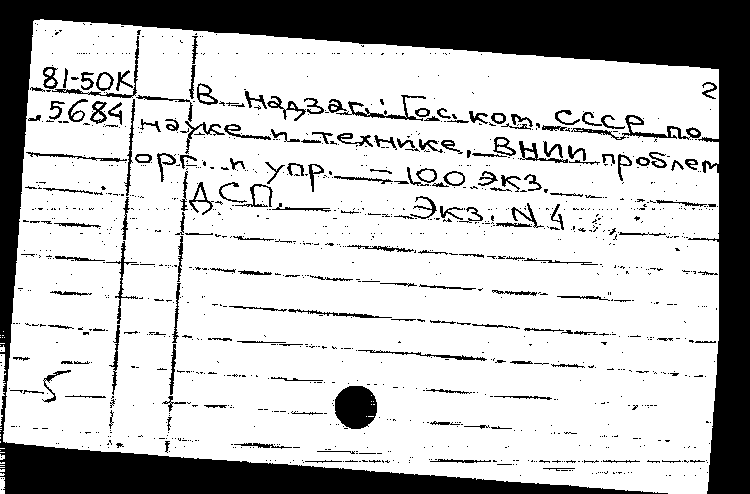 2
81-50К
5684
В надзаг.: Гос. ком. СССР по
науке и технике, ВНИИ проблем
орг. и упр. – 100 экз.
ДСП. Экз. N 4
5